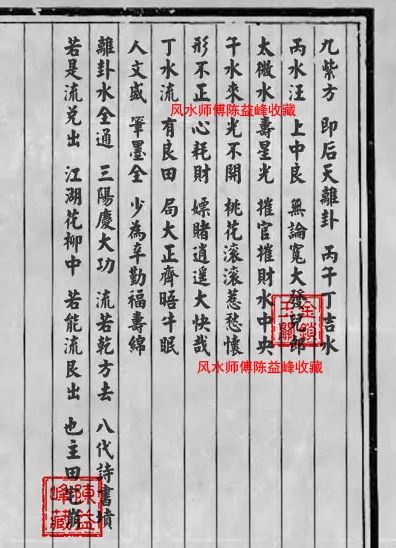 九紫方 即后天離卦 丙午丁吉水
丙水汪 上中良 無論寬大發兒郎
太微水 壽星光 摧官摧財水中央
午水來 光不開 桃花滾滾惹愁懷
形不正 心耗財 嫖賭逍遥大快哉
丁水流 有良田 局大正齊晤牛眠
人文盛 筆墨全 少為辛勤福壽綿
離卦水全通 三陽慶大功 流若乾方去 八代詩書墳
若是流兑出 江湖花柳中 若能流艮出 也主田宅崩
风水师傅陈益峰收藏
风水师傅陈益峰收藏
金鎖玉關
陳益峰藏